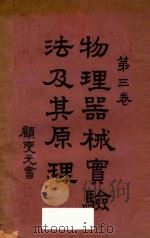 第三卷
物理器械實驗
法及其原理
顧燮光書